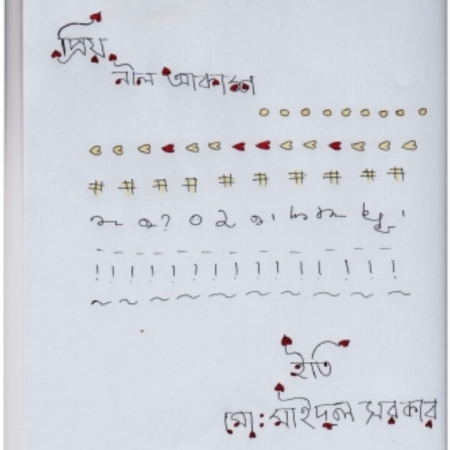 প্রিয়
নীল আকাশ
# # # # # # # # # #
- - - - - - - - - - - - -
! ! ! ! ! ! ! ! ! ! ! ! ! !
~ ~ ~ ~ ~ ~ ~ ~ ~ ~ ~
ইতি
মো: মাইদুল সরকার